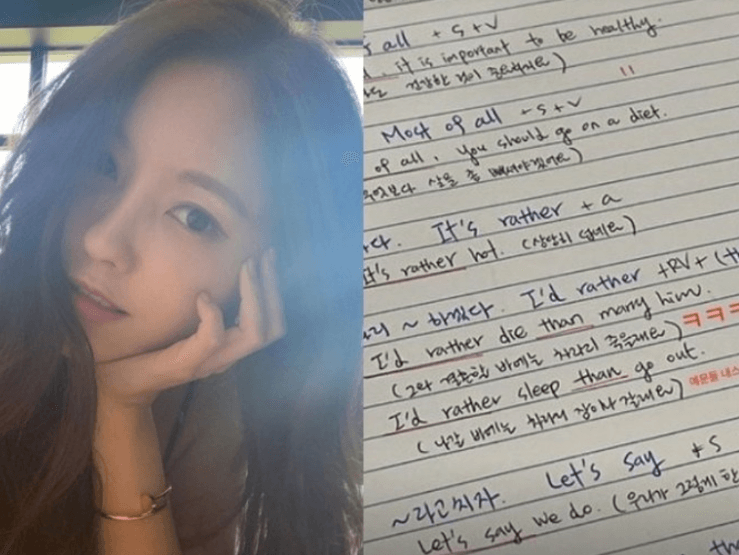 all + S + V
it is important to be healthy.
건강한 것이 중요해요)
Most of all + S + V
of all, you should go on a diet.
살을 좀 빼야겠어요)
It's rather + a
It's rather hot. (상당히 덥네요)
~ 하겠다. I'd rather + RV + (th
I'd rather die than marry him.
(그와 결혼할 바에는 차라리 죽을래요) ㅋㅋㅋ
I'd rather sleep than go out.
(나갈 바에는 차라리 잠이나 잘래요) 예문들
~라고치자. Let's say + S
Let's say we do. (우리가 그렇게 한